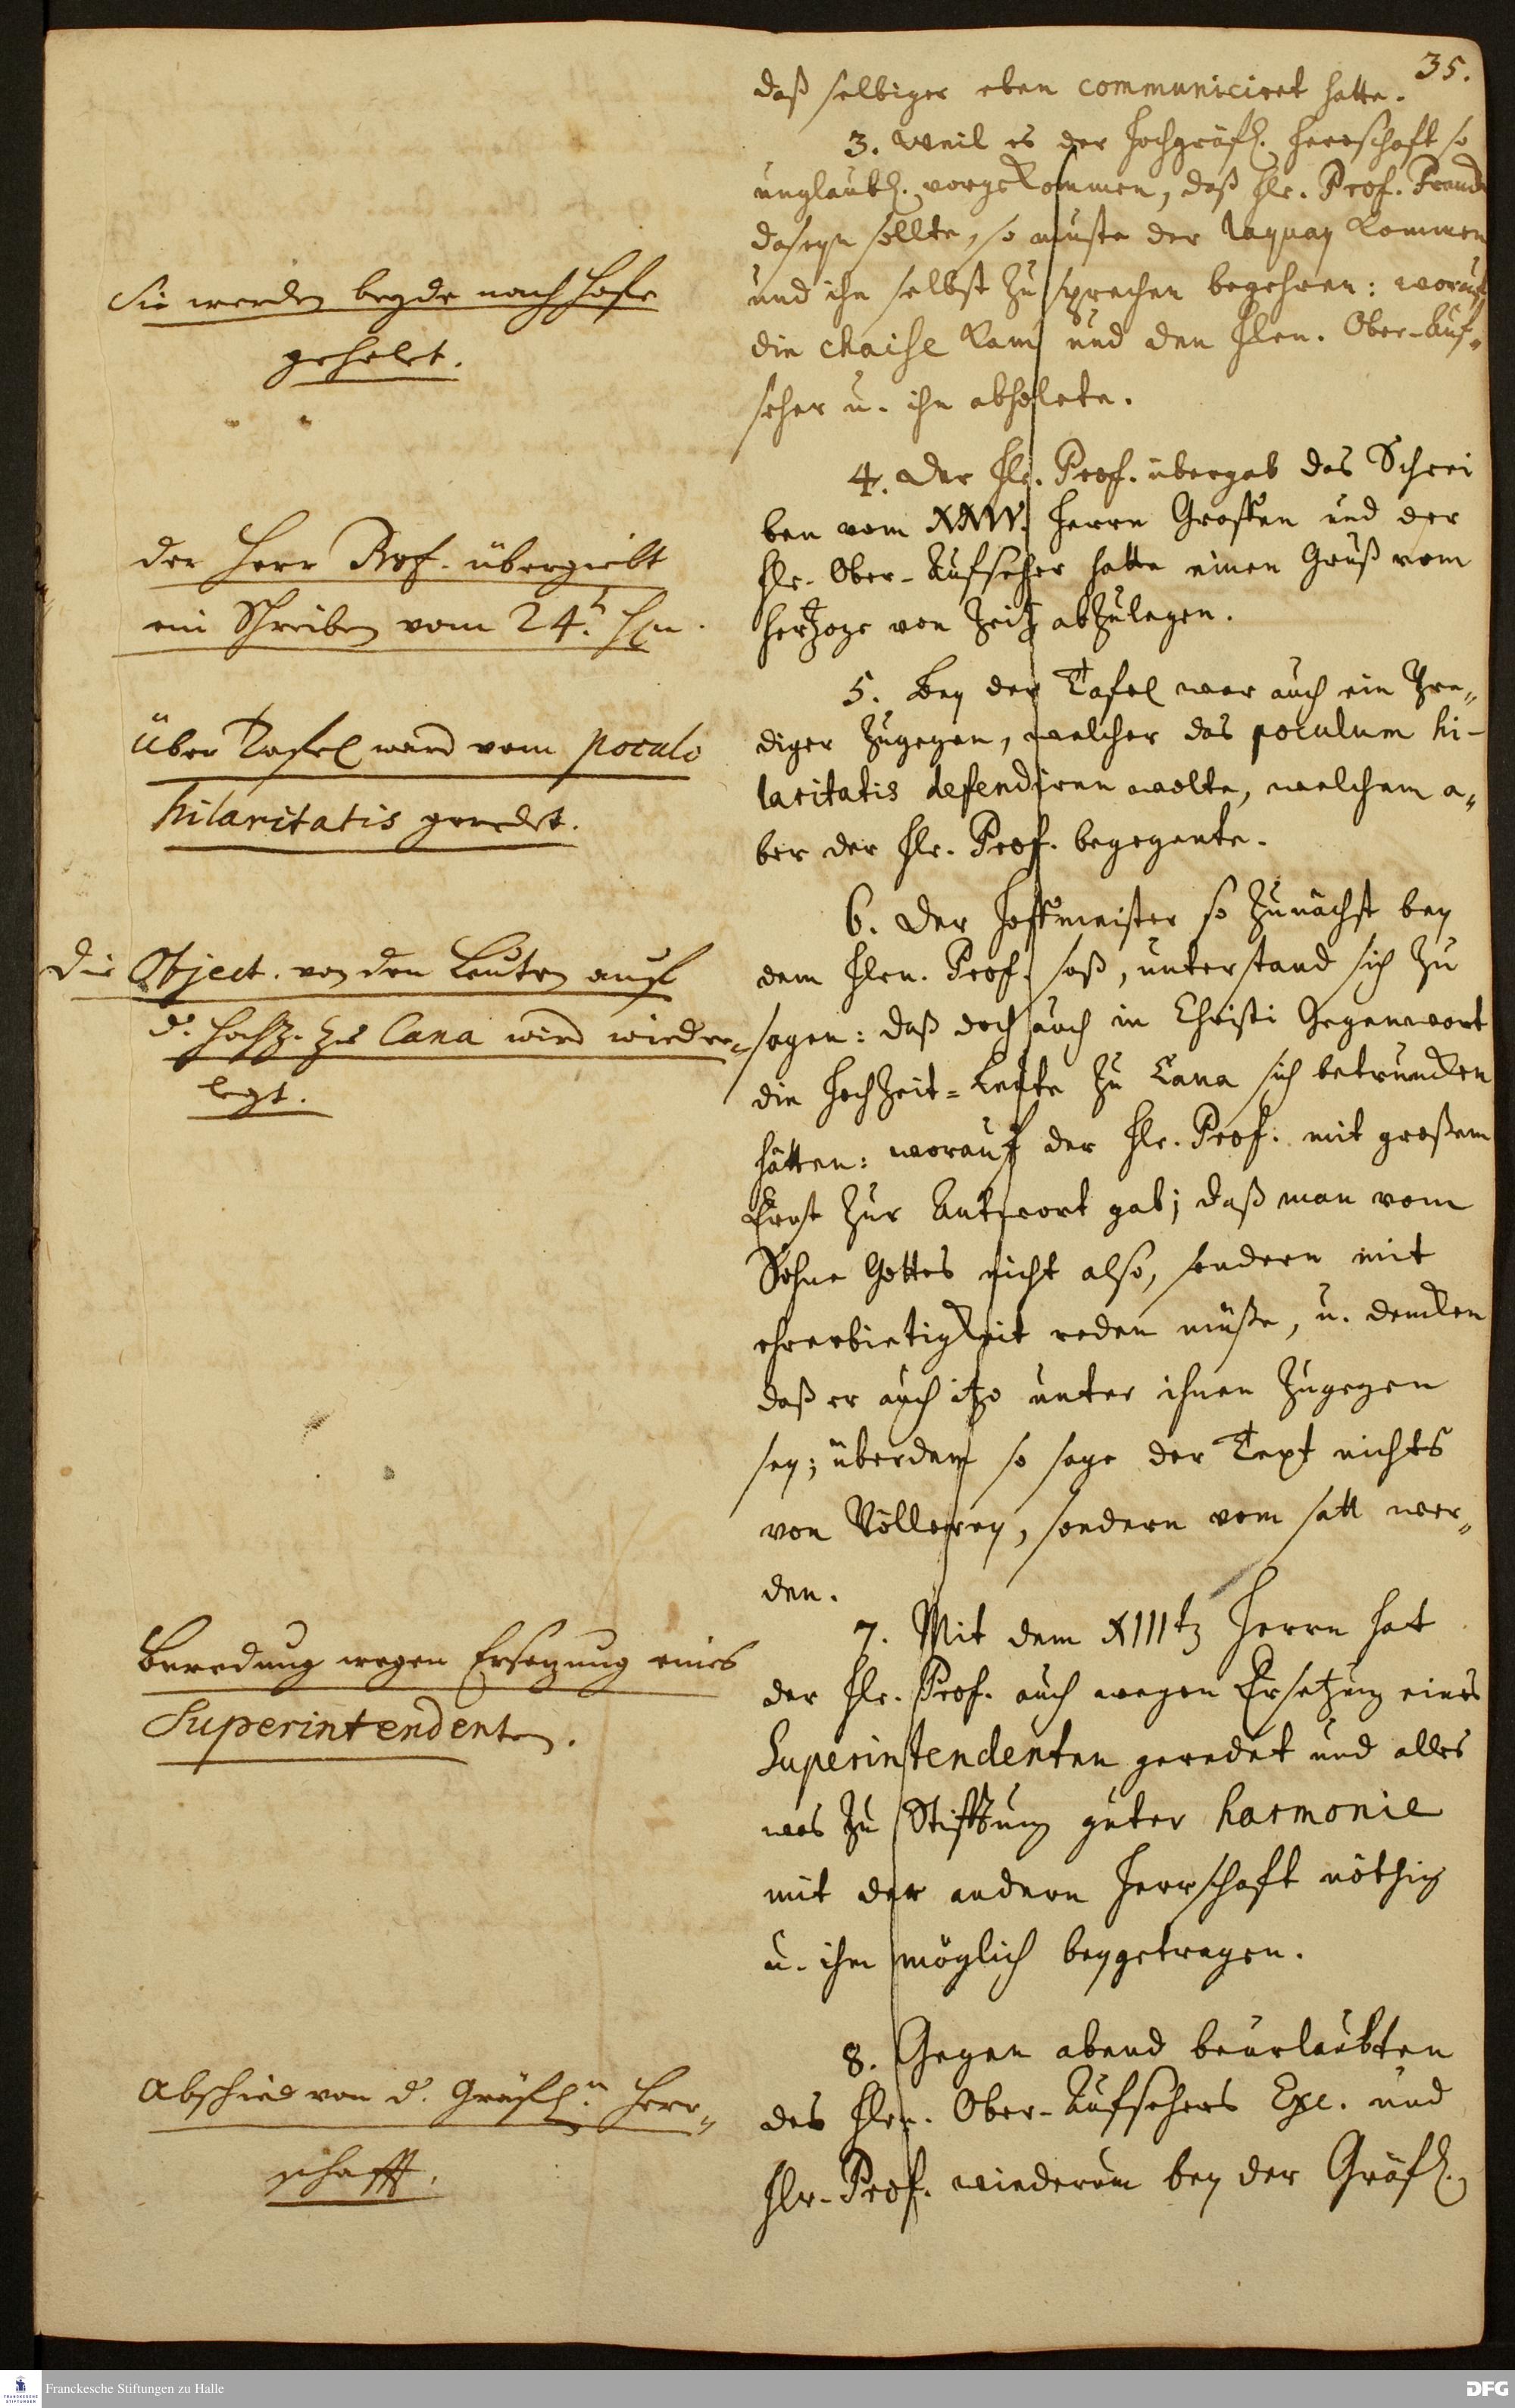 35.
daß selbiger eben communiciret hatte.
3. Weil es der Hochgräfl. Herrschaft so
unglaubl. vorgekommen, daß Hr. Prof. Franck
daseyn sollte, so muste der laquay kommen
und ihn selbst zu sprechen begehren: worauf
die chaise kam und den Hrn. Ober-Auf-
seher u. ihn abholete.
Sie werden beyde nach Hofe
geholet.
4. Der Hr. Prof. übergab das Schrei
ben vom XXIV. Herrn Grafen und der
Hr. Ober-Aufseher hatte einen Gruß vom
Hertzoge von Zeitz abzulegen.
der Herr Prof. übergiebt
ein Schreiben vom 24. Hn.
5. Bey der Tafel war auch ein Pre-
diger zugegen, welcher das poculum hi-
laritatis defendiren wolte, welchem a-
ber der Hr. Prof. begegnete.
Über Tafel ward vom poculo
hilaritatis geredet.
6. Der Hoffmeister so zunächst bey
dem Hrn. Prof. saß, unterstand sich zu
sagen: daß doch auch in Christi Gegenwart
die Hochzeit-Leute zu Cana sich betruncken
hätten: worauf der Hr. Prof. mit großem
Ernst zur Antwort gab; daß man vom
Sohne Gottes nicht also, sondern mit
ehrerbietigkeit reden müße, u. dencken
daß er auch itzo unter ihnen zugegen
sey; überdem so sage der Text nichts
von Völlerey, sondern vom satt wer-
den.
Die Object. von den Leuten auf
d. Hochz. zu Cana wird wieder-
legt.
7. Mit dem XIIItz Herrn hat
der Hr. Prof. auch wegen Ersetzung eines
Superintendenten geredet und alles
was zu Stifftung guter harmonie
mit der andern Herrschaft nöthig
u. ihm möglich beygetragen.
Beredung wegen Ersezung eines
Superintendenten.
8. Gegen abend beurlaubten
des Hrn. Ober-Aufsehers Exc. und
Hr. Prof. wiederum bey der Gräfl.
Abschied von d. Gräfl.n Herr-
schafft.
Franckesche Stiftungen zu Halle
DFG